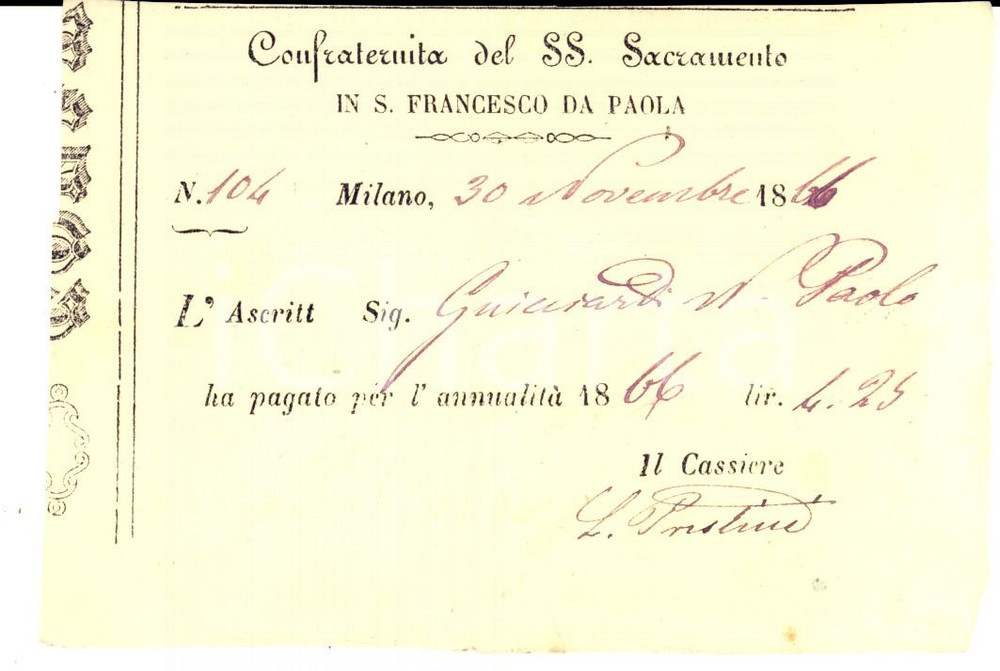 Confraternita del SS. Sacramento
IN S. FRANCESCO DA PAOLA
N. 104 Milano, 30 Novembre 1866
L' Ascritt Sig. Guicciardi N. Paolo
ha pagato per l' annualità 1866 lir. 4. 25
Il Cassiere
L. Pristini
iCharta